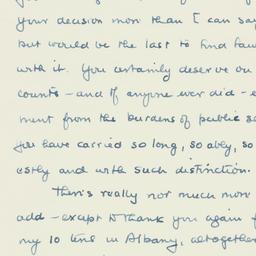 your decision more than I can say
but would be the last to find fau
with it. You certainly deserve on
counts – and if anyone ever did – e
ment from the burdens of public se
you have carried so long, so ably, so
estly and with such distinction.
There's really not much more
add – except to thank you again f
my 10 in Albany, altogether